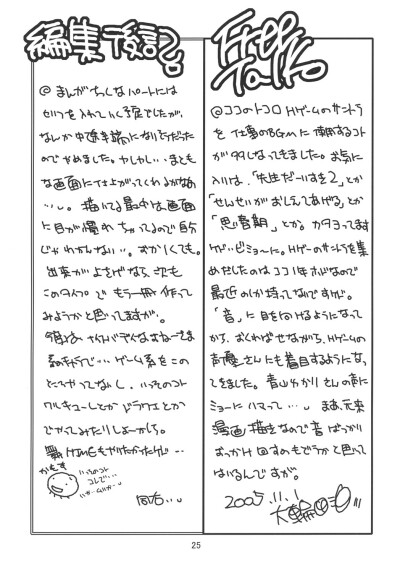 Free Talk
@ココのトコロHゲームのサントラ
を仕事のBGMに使用するコト
が多くなってきました。お気に
入りは、「先生だーいすき2」とか
「せんせいがおしえてあげる」とか
「思春期」とか。カタヨってます
けど…ビミョーに。Hゲーのサントラを集
めだしたのはココ1年ホドなので
最近のしか持ってないですけど。
「音」に耳を向けるようになって
から、おくればせながら、Hゲームの
声優さんにも着目するようになっ
てきました。青山ゆかりさんの声に
ミョーにハマって…。まあ、元来
漫画描きなので音ばっかり
おっかけ回すのもどうかと思って
はいるんですが。
2005.11.1
大輪
編集後記。
@まんがちっくなパートには
せりつを入れていく予定でしたが、
なんか中途半端になりそうだった
のでやめました。やしかし…まとも
な画面に仕上がってくれるかなぁ
…。描いてる最中は画面
に目が慣れちゃってるので自分
じゃわかんない…。ずかしくても。
出来がよさげなら、次も
このタイプでもう一冊作って
みようかと思ってますが。
系のキャラで…ゲーム系をこの
ところやってないし、いっそのコト
ワルキューレとかドラクエとか
でやってみたりしよーかしら。
舞HiMEもやりたかったんけど…
かもす
いっそのコト
コレで…
25